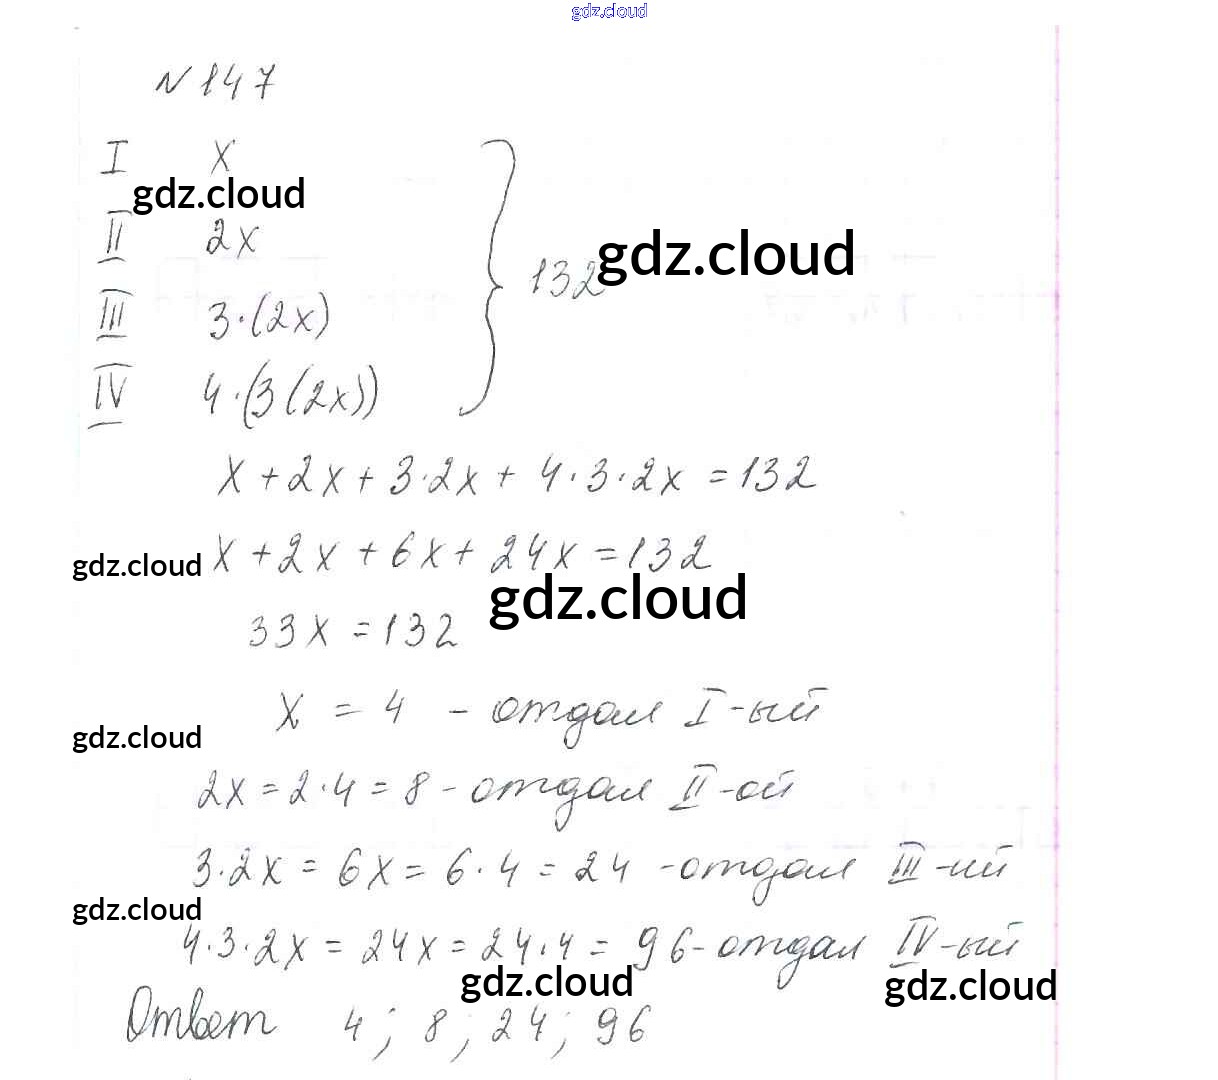 gdz.cloud
N 147
I x
gdz.cloud
II 2x
132 gdz.cloud
III 3·(2x)
IV 4·(3(2x))
x + 2x + 3·2x + 4·3·2x = 132
gdz.cloud x + 2x + 6x + 24x = 132
gdz.cloud
33x = 132
x = 4 - отдал I-ый
gdz.cloud
2x = 2·4 = 8 - отдал II-ой
3·2x = 6x = 6·4 = 24 - отдал III-ий
gdz.cloud
4·3·2x = 24x = 24·4 = 96 - отдал IV-ый
gdz.cloud gdz.cloud
Ответ 4; 8; 24; 96